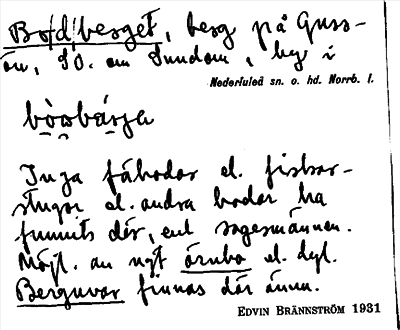 Bo/d/berget, berg på Guss-
ön, SO. om Sundom, by i
Nederluleå sn. o. hd. Norrb. l.
Inga fäbodar el. fiskar-
stugor el. andra bodar ha
funnits där, enl. sagesmännen.
Möjl. av ngt
el. dyl.
Berguvar finnas där ännu.
EDVIN BRÄNNSTRÖM 1931